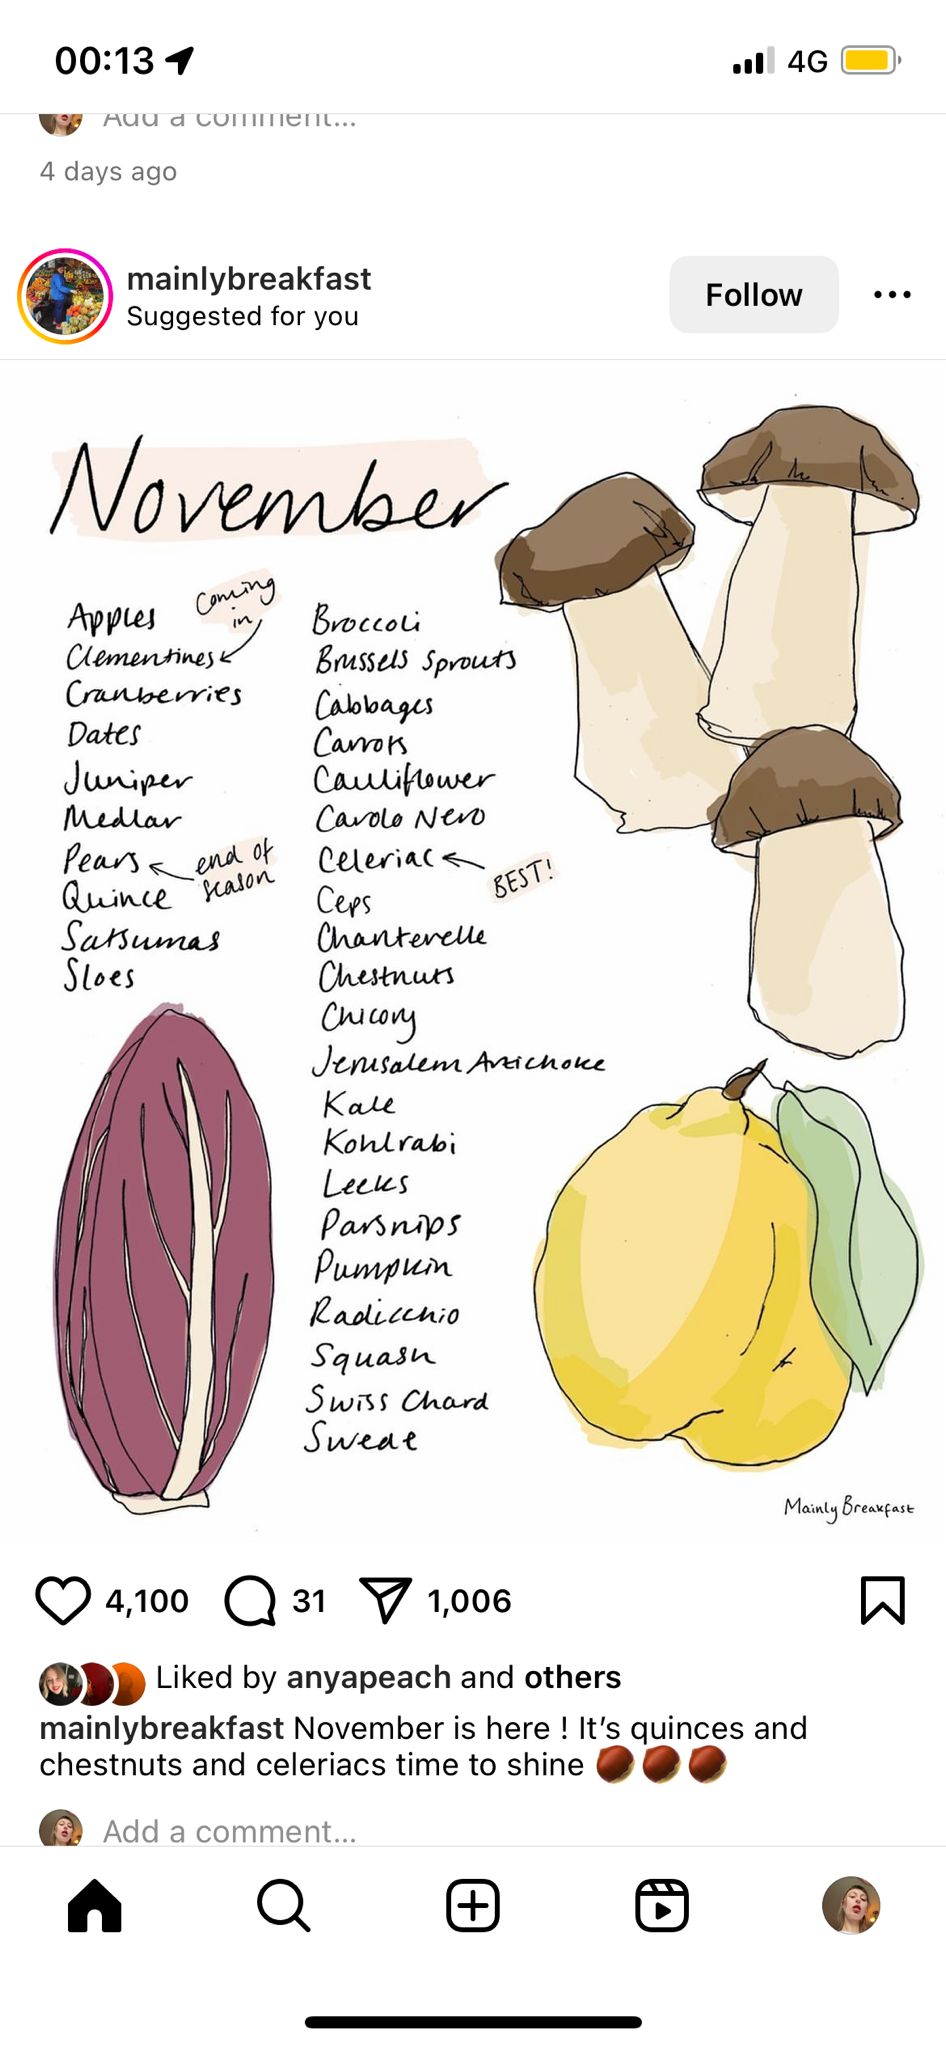 00:13
4G
Add a comment...
4 days ago
mainlybreakfast
Suggested for you
Follow
November
coming
in
Apples
Clementines
Cranberries
Dates
Juniper
Medlar
Pears
end of
season
Quince
Satsumas
Sloes
Broccoli
Brussels Sprouts
Cabbages
Carrots
Cauliflower
Carolo Nero
Celeriac
BEST!
Ceps
Chanterelle
Chestnuts
Chicory
Jerusalem Artichoke
Kale
Kohlrabi
Leeks
Parsnips
Pumpkin
Radicchio
Squash
Swiss Chard
Swede
Mainly Breakfast
4,100
31
1,006
Liked by anyapeach and others
mainlybreakfast November is here ! It’s quinces and
chestnuts and celeriacs time to shine 🌰🌰🌰
Add a comment...